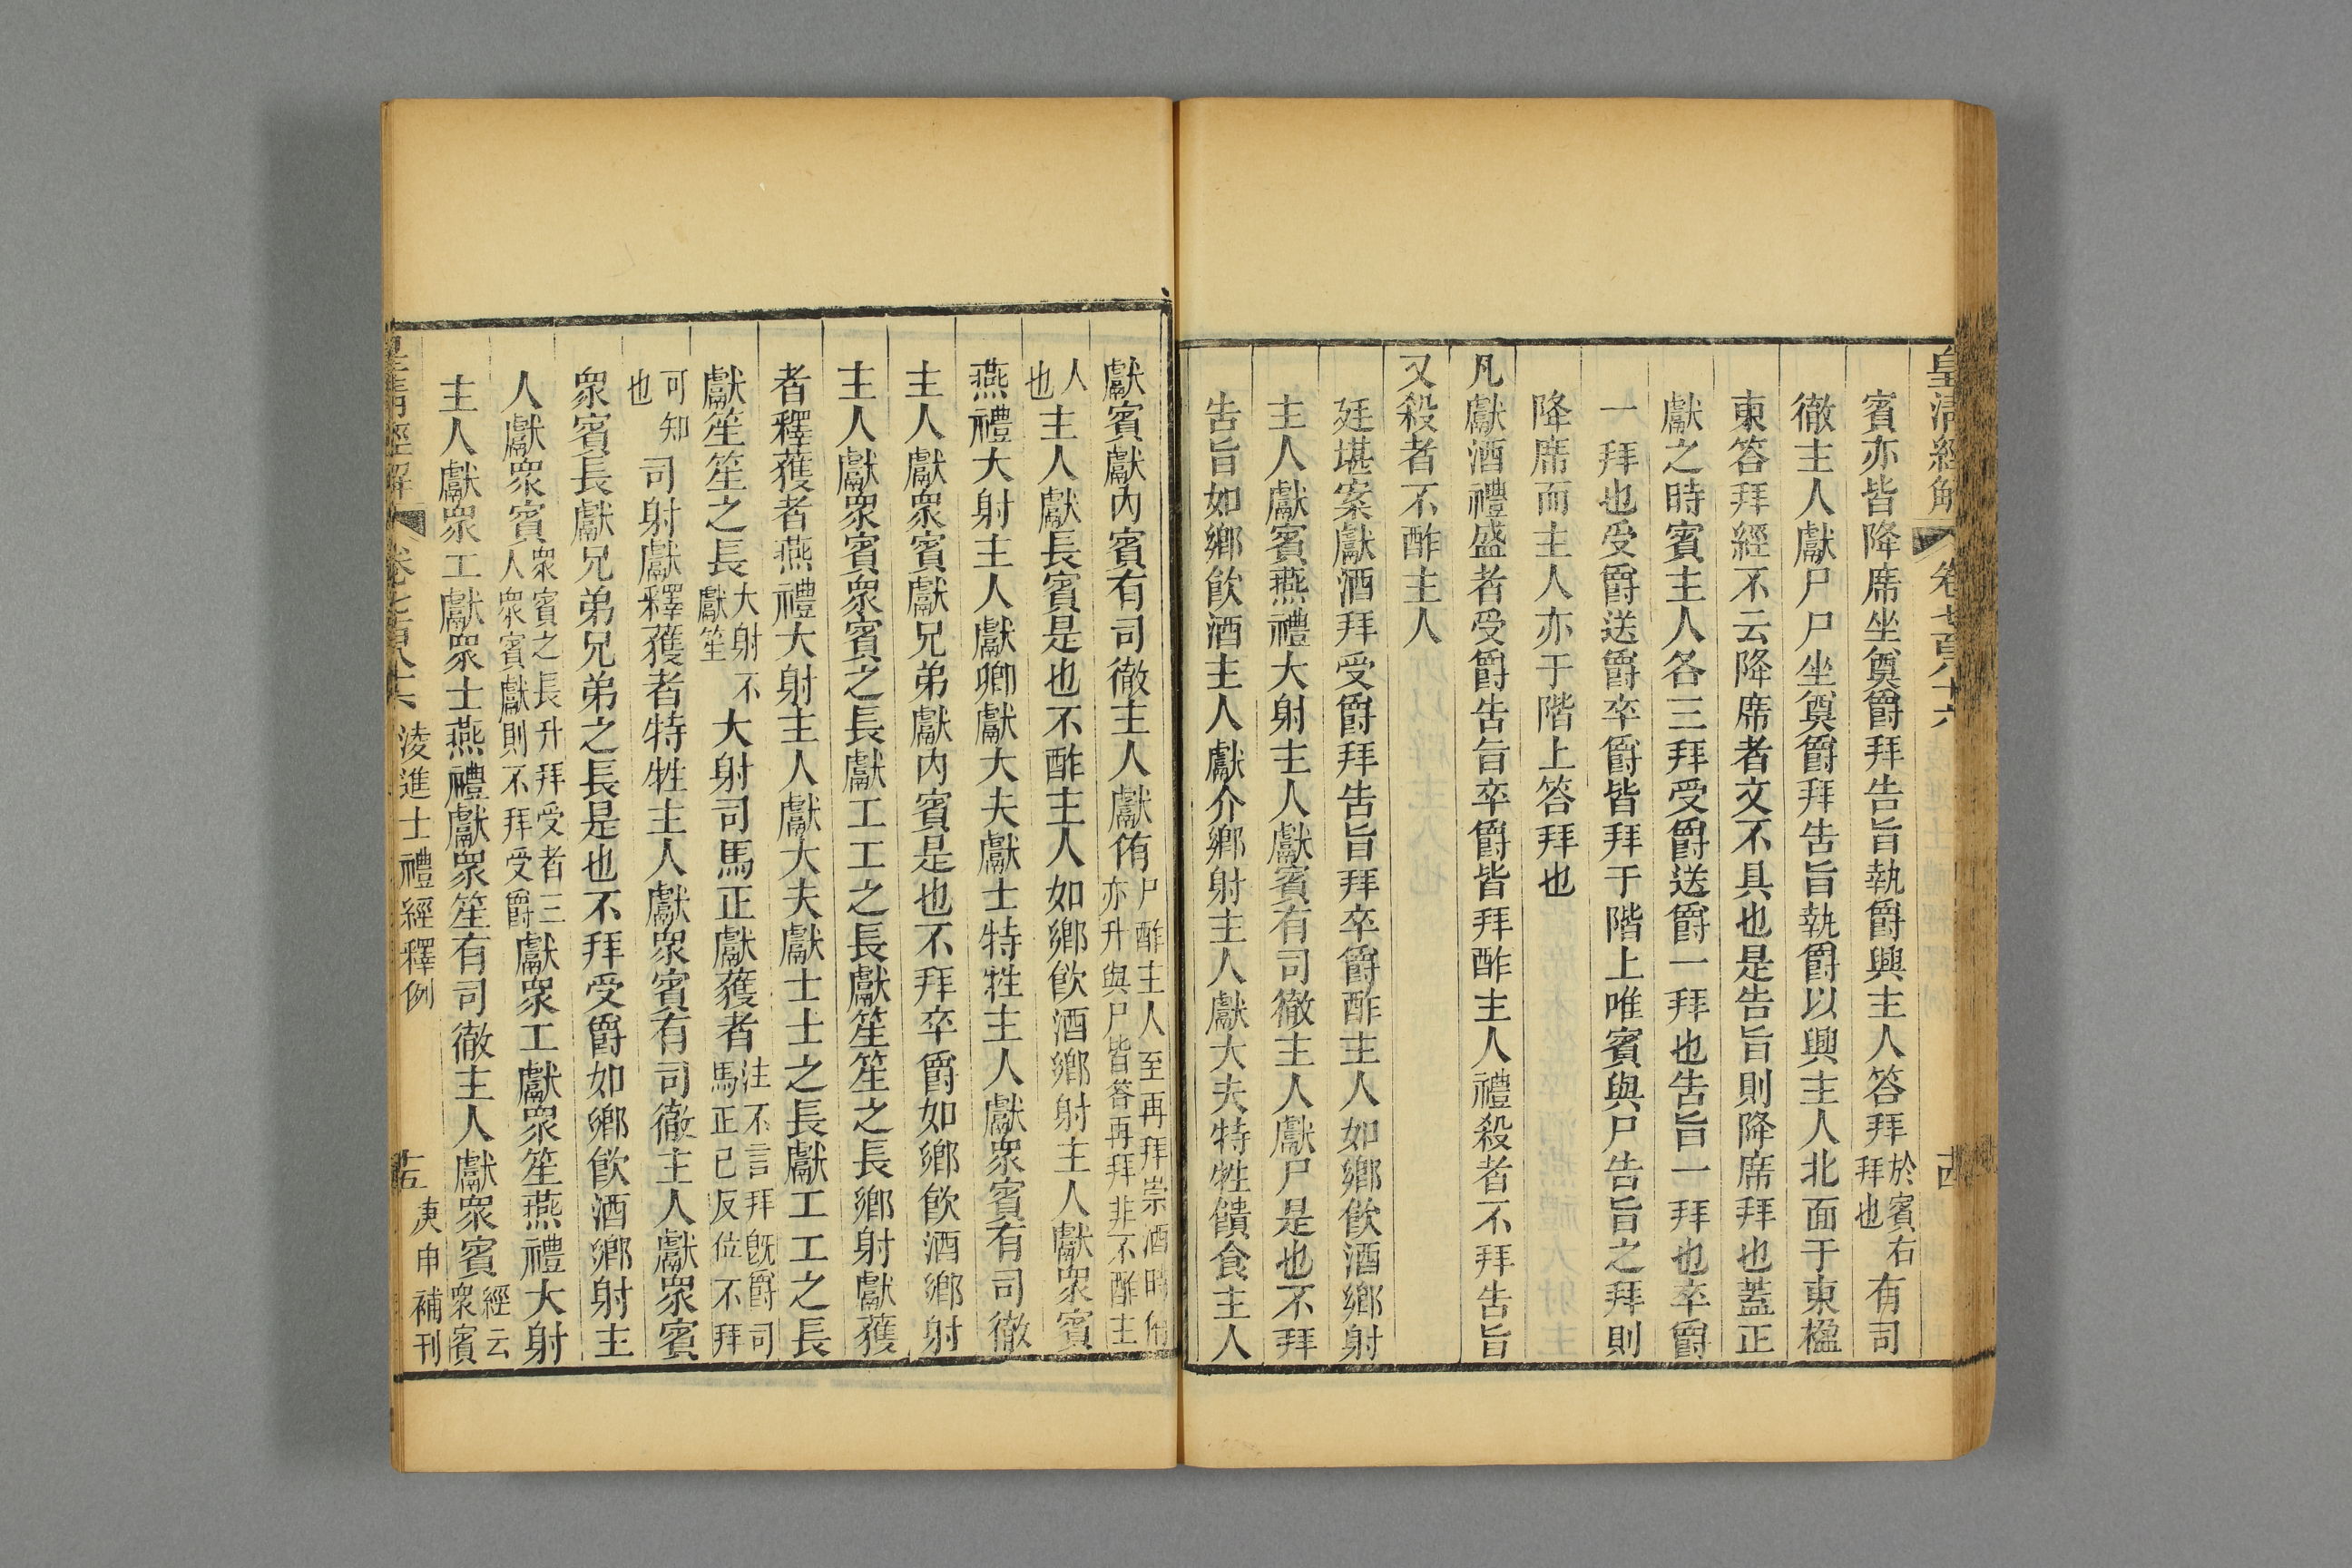 皇清經解 卷七百八十六 十四
賓亦皆降席坐奠爵拜告旨執爵興主人答拜於賓右拜也有司
徹主人獻尸尸坐奠爵拜告旨執爵以興主人北面于東楹
東答拜經不云降席者文不具也是告旨則降席拜也蓋正
獻之時賓主人各三拜受爵送爵一拜也告旨一拜也卒爵
一拜也受爵送爵卒爵皆拜于階上唯賓與尸告旨之拜則
降席而主人亦于階上答拜也
凡獻酒禮盛者受爵告旨卒爵皆拜酢主人禮殺者不拜告旨
又殺者不酢主人
廷堪案獻酒拜受爵拜告旨拜卒爵酢主人如鄉飲酒鄉射
主人獻賓燕禮大射主人獻賓有司徹主人獻尸是也不拜
告旨如鄉飲酒主人獻介鄉射主人獻大夫特牲饋食主人
獻賓獻內賓有司徹主人獻侑尸酢主人至再拜崇酒時侑亦升與尸皆答再拜非不酢主
人也主人獻長賓是也不酢主人如鄉飲酒鄉射主人獻眾賓
燕禮大射主人獻卿獻大夫獻士特牲主人獻眾賓有司徹
主人獻眾賓獻兄弟獻內賓是也不拜卒爵如鄉飲酒鄉射
主人獻眾賓眾賓之長獻工工之長獻笙笙之長鄉射獻獲
者釋獲者燕禮大射主人獻大夫獻士士之長獻工工之長
獻笙笙之長大射不獻笙大射司馬正獻獲者注不言拜既爵司馬正已反位不拜
可知也司射獻釋獲者特牲主人獻眾賓有司徹主人獻眾賓
眾賓長獻兄弟兄弟之長是也不拜受爵如鄉飲酒鄉射主
人獻眾賓眾賓之長升拜受者三人眾賓獻則不拜受爵獻眾工獻眾笙燕禮大射
主人獻眾工獻眾士燕禮獻眾笙有司徹主人獻眾賓經云眾賓
皇清經解 卷七百八十六 淩進士禮經釋例 十五 庚申補刊